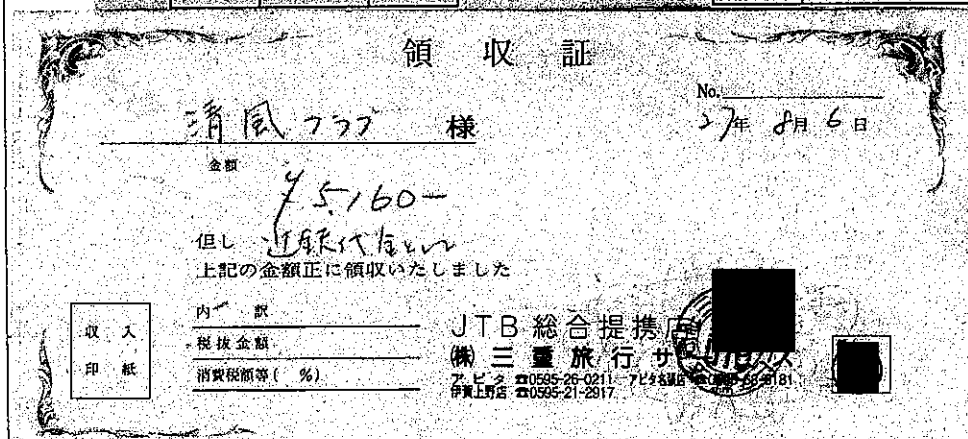 領収証
No.
清風クラブ 様
27年 8月 6日
金額
¥5,160-
但し 近鉄代金として
上記の金額正に領収いたしました
収入
印紙
内訳
税抜金額
消費税額等( %)
JTB総合提携店
(株)三重旅行サービス
アピタ ☎0595-26-0211 アピタ名張店
伊賀上野店 ☎0595-21-2917